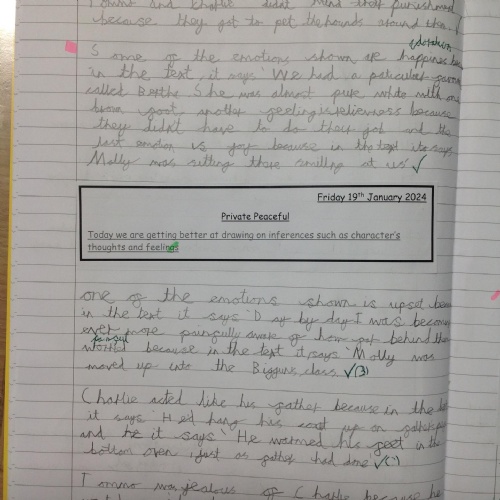 Tommo and Charlie didn't mind their punishment
because they got to pet the hounds around
adoration
Some of the emotions shown are happiness
in the text, it says 'We had a peticular
called Bertha She was almost pure white with one
brown foot, another feeling is relieveness because
they didn't have to do their job and the
last emotion is joy because in the text it says
Molly was sitting there smiling at us' ✓
Friday 19th January 2024
Private Peaceful
Today we are getting better at drawing on inferences such as character's
thoughts and feelings
one of the emotions shown is upset
in the text it says 'Day by day I was
ever more painfully aware of how far behind
worried because in the text it says 'Molly was
moved up into the Bigguns class ✓(3)
Charlie acted like his father because in the
it says 'He'd hang his coat up on
and he it says 'He warmed his feet in the
bottom oven just as father had done ✓
Tommo was jealous of Charlie because he